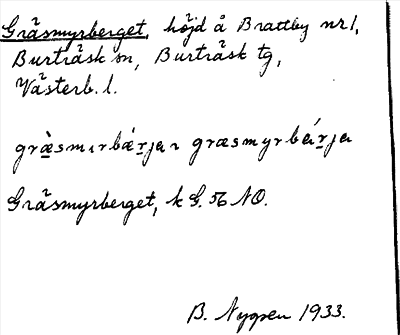 Gräsmyrberget, höjd å Brattby nr 1,
Burträsk sn, Burträsk tg,
Västerb. l.
græ̀smırbǽrjaı græsmyrbǽrja
Gräsmyrberget, k G. 56 NO.
B. Nygren 1933.